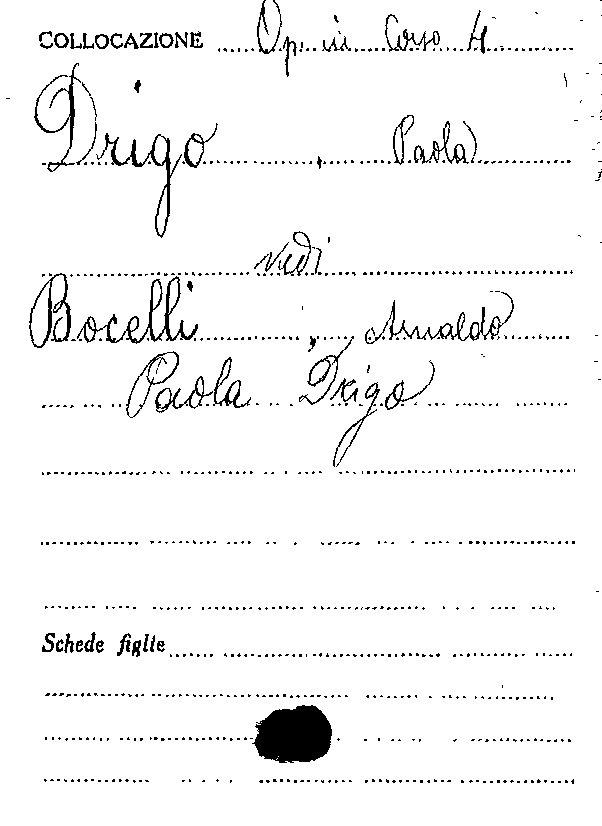 COLLOCAZIONE Op. in Corso 4
Drigo, Paola
vedi
Bocelli, Arnaldo
Paola Drigo
Schede figlie